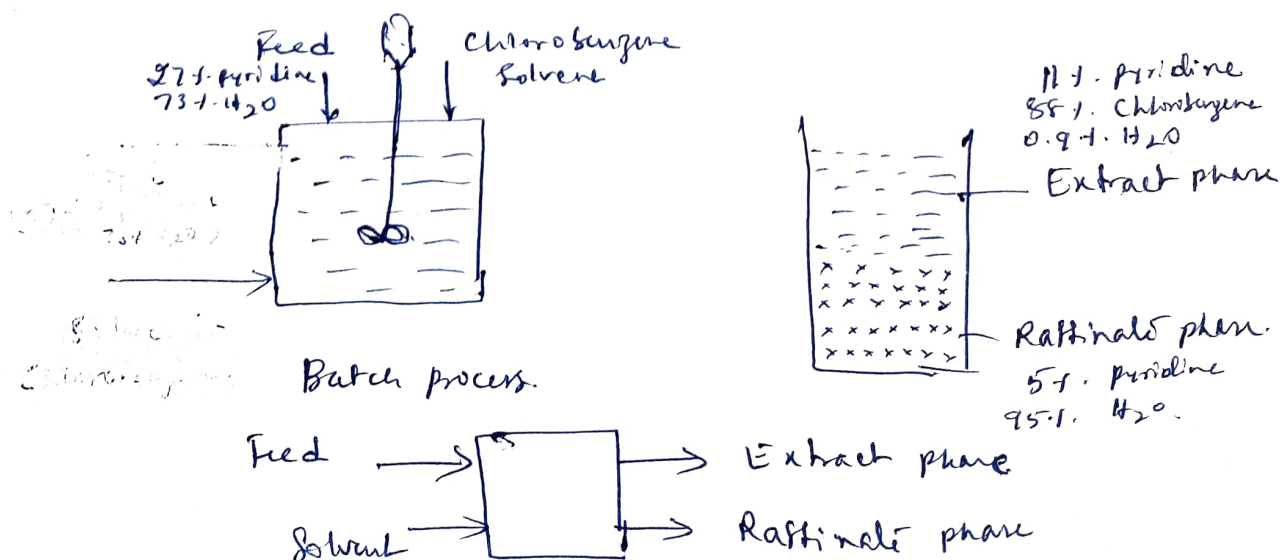 Feed
27%. pyridine
73%. H2O
Chlorobenzene
Solvent
11%. pyridine
88%. Chlorobenzene
0.9%. H2O
Extract phase
Raffinate phase.
5%. pyridine
95%. H2O.
Batch process.
Feed
Extract phase
Solvent
Raffinate phase